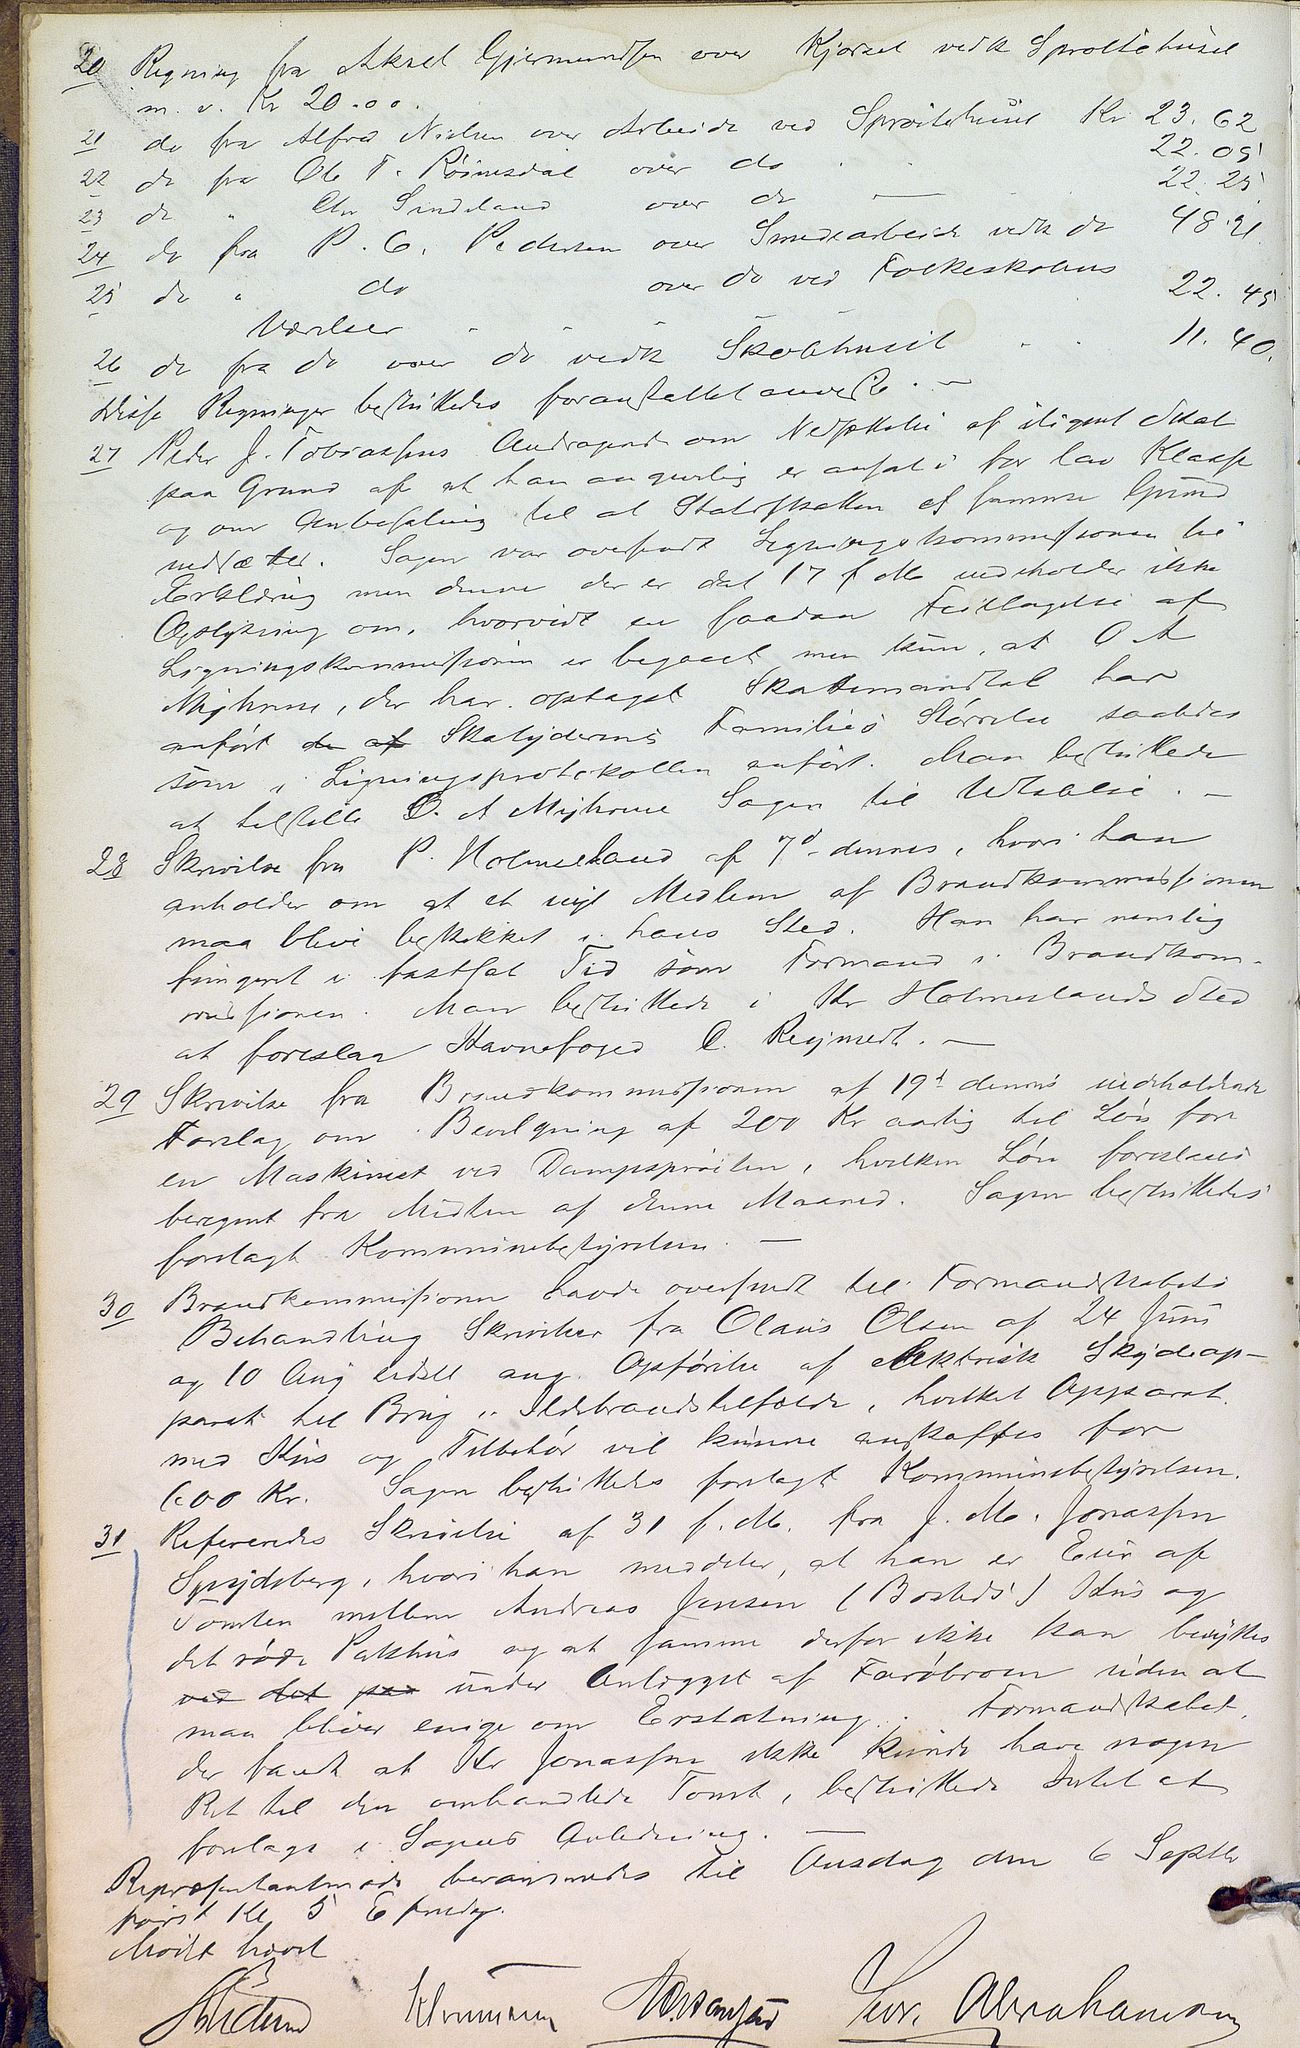 20 Regning fra Aksel Gjermundsen over Kjørsel vedk Sprøitehuset
m. v. Kr 20.00.
21 do fra Alfred Nielsen over Arbeide ved Sprøitehuset Kr 23.62
22 do fra Ole T. Røinesdal over do . . 22.05
23 do " Chr Sindeland over do — 22.25
24 do fra P. C. Pedersen over Smedearbeide vedk do 48.21
25 do " do over do ved Folkeskolens
Værelser " " " " 22.45
26 do fra do over do vedk Skolehuset . . 11.40.
Disse Regninger besluttedes foranstaltet anvist. —
27 Peder J. Tobiassens Andragende om Nedsættelse af iligent Skat
paa Grund af at han angivelig er ansat i for lav Klasse
og om Anbefaling til at Statsskatten af samme Grund
nedsættes. Sagen var oversendt Ligningskommissionen til
Erklæring men denne der er dat 17 f M indeholder ikke
Oplysning om, hvorvidt en saadan Feiltagelse af
Ligningskommissionen er begaaet men kun, at O A
Myhrene, der har optaget Skattemandtal har
anført de af Skatyderens Families Størrelse saaledes
som i Ligningsprotokollen anført. Man besluttede
at tilstille O. A Myhrene Sagen til Udtalelse. —
28 Skrivelse fra P. Holmesland af 7d dennes, hvori han
anholder om at et nyt Medlem af Brandkommissionen
maa blive beskikket i hans Sted. Han har nemlig
fungeret i fastsat Tid som Formand i Brandkom-
missionen. Man besluttede i Hr Holmeslands Sted
at foreslaa Havnefoged C. Reymert. —
29 Skrivelse fra Brandkommissionen af 19d dennes indeholdende
Forslag om Bevilgning af 200 Kr aarlig til Løn for
en Maskinist ved Dampsprøiten, hvilken Løn foreslaaes
beregnet fra Midten af denne Maaned. Sagen besluttedes
forelagt Kommunebestyrelsen. —
30 Brandkommissionen havde oversendt til Formandskabets
Behandling Skrivelser fra Olaus Olsen af 24 Juni
og 10 Aug sidstl ang. Opførelse af elektrisk Skydeap-
parat til Brug i Ildebrandstilfælde, hvilket Apparat
med Hus og Tilbehør vil kunne anskaffes for
600 Kr. Sagen besluttedes forelagt Kommunebestyrelsen.
31 Refereredes Skrivelse af 31 f. M. fra J. M. Jonassen
Spydsberg, hvori han meddeler, at han er Eier af
Tomten mellem Andreas Jensen (Bosteds) Hus og
det røde Pakhus og at samme derfor ikke kan benyttes
ved det paa under Anlægget af Farøbroen uden at
man bliver enige om Erstatning. Formandskabet,
der fandt at Hr Jonassen ikke kunde have nogen
Ret til den omhandlede Tomt, besluttede Intet at
foretage i Sagens Anledning. —
Repræsentantmøde berammedes til Onsdag den 6 Septbr
først Kl 5 Eftmdg.
Mødet hævet
Geor. Abrahamsen